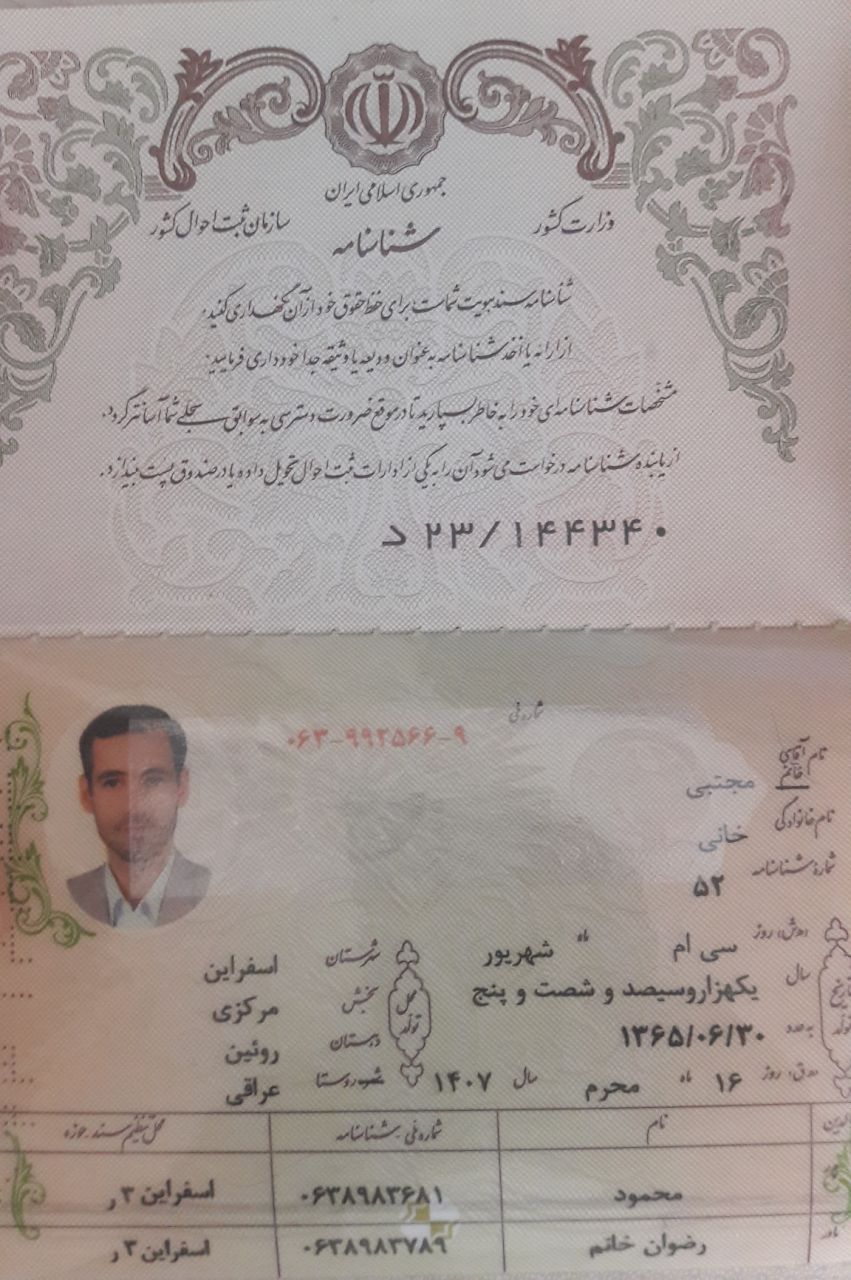 جمهوری اسلامی ایران
وزارت کشور
سازمان ثبت احوال کشور
شناسنامه
شناسنامه سند هویت شماست برای حفظ حقوق خود از آن نگهداری کنید.
از ارائه یا اخذ شناسنامه به عنوان ودیعه یا وثیقه جدا خودداری فرمایید.
مشخصات شناسنامه‌ای خود را به خاطر بسپارید تا در موقع ضرورت دسترسی به سوابق سجلی شما آسانتر گردد.
از یابنده شناسنامه درخواست می شود آن را به یکی از ادارات ثبت احوال تحویل داده یا در صندوق پست بیندازد.
د ۲۳/۱۴۴۳۴۰
شماره ملی
۰۶۳-۹۹۲۵۶۶-۹
نام آقای خانم مجتبی
نام خانوادگی خانی
شماره شناسنامه ۵۲
(ه.ش) روز سی ام ماه شهریور
شهرستان اسفراین
سال یکهزاروسیصد و شصت و پنج
بخش مرکزی
تاریخ تولد
محل تولد
به عدد ۱۳۶۵/۰۶/۳۰
دهستان روئین
(ه.ق) روز ۱۶ ماه محرم سال ۱۴۰۷
شهر-روستا عراقی
نام شماره ملی-شناسنامه محل تنظیم سند-حوزه
محمود ۰۶۳۸۹۸۳۶۸۱ اسفراین ۳ ر
مادر رضوان خانم ۰۶۳۸۹۸۳۷۸۹ اسفراین ۳ ر